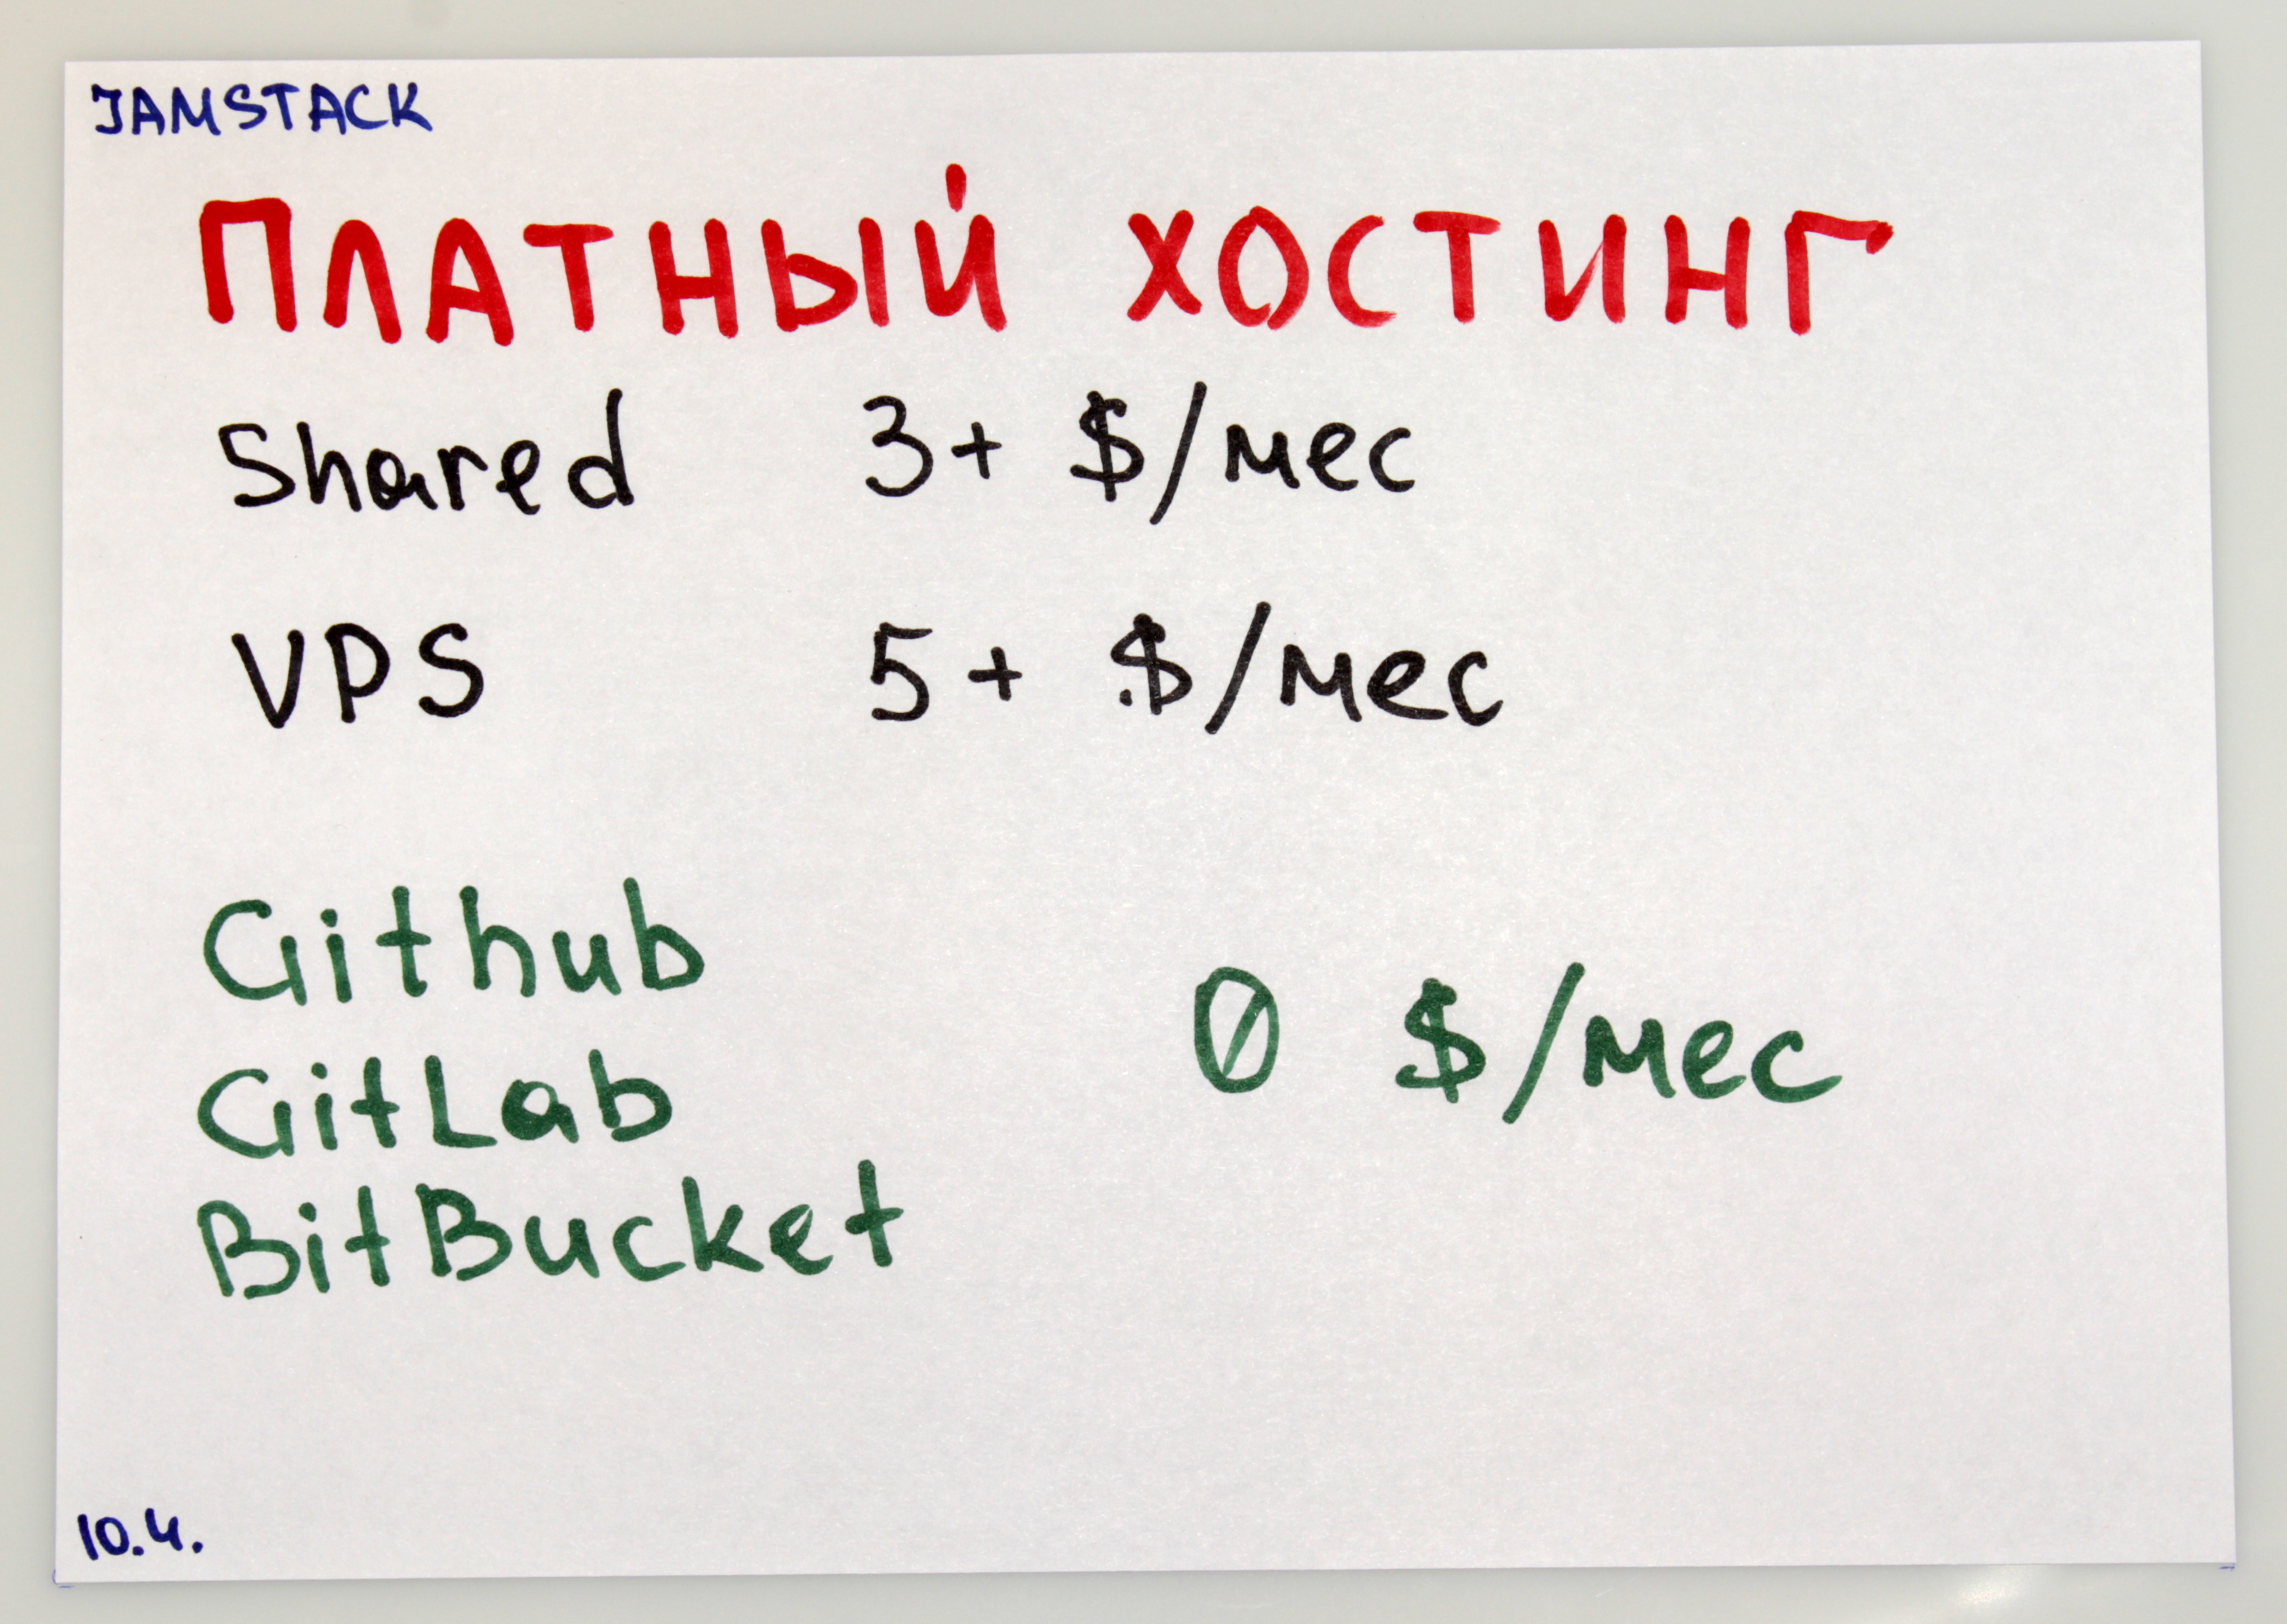 JAMSTACK
ПЛАТНЫЙ ХОСТИНГ
Shared 3+ $/мес
VPS 5+ $/мес
Github
0 $/мес
GitLab
BitBucket
10.4.